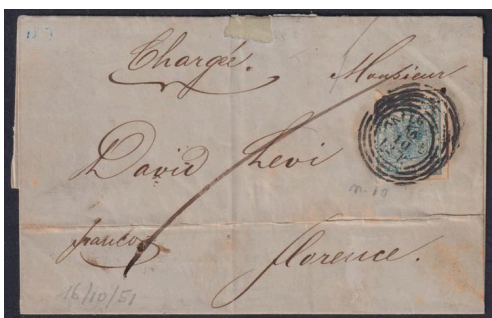 Chargée.
Monsieur
David Levi
n. 10
franco
Florence.
16/10/51